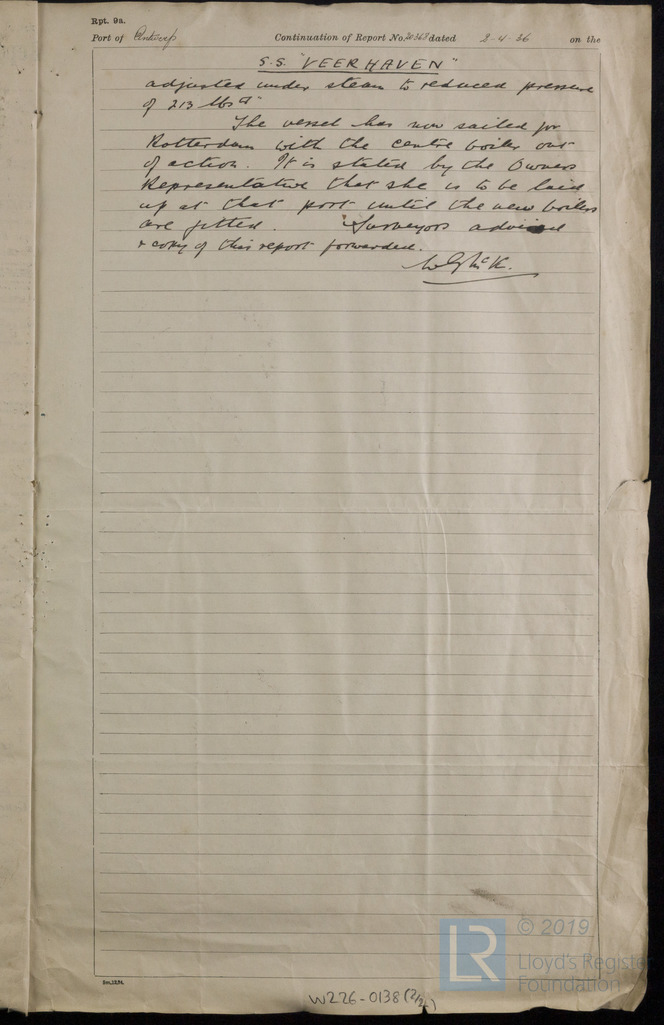 Rpt. 9a.
Port of Antwerp Continuation of Report No. 20363 dated 2-4-36 on the
S.S. "VEERHAVEN"
adjusted under steam to reduced pressure
of 213 lbs □"
The vessel has now sailed for
Rotterdam with the centre boiler out
of action. It is stated by the Owners
Representative that she is to be laid
up at that port until the new boilers
are fitted. Surveyors advised
& copy of this report forwarded.
W G McK.
5m.12.34.
W226-0138 (2/2)
LR © 2019
Lloyd's Register
Foundation